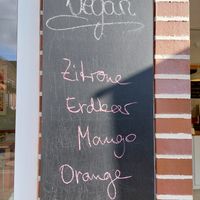 Vegan
Zitrone
Erdbär
Mango
Orange